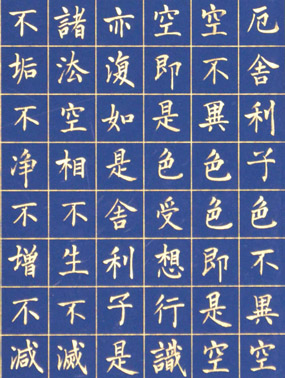 厄舍利子色不異空
空不異色色即是空
空即是色受想行識
亦復如是舍利子是
諸法空相不生不滅
不垢不净不增不减